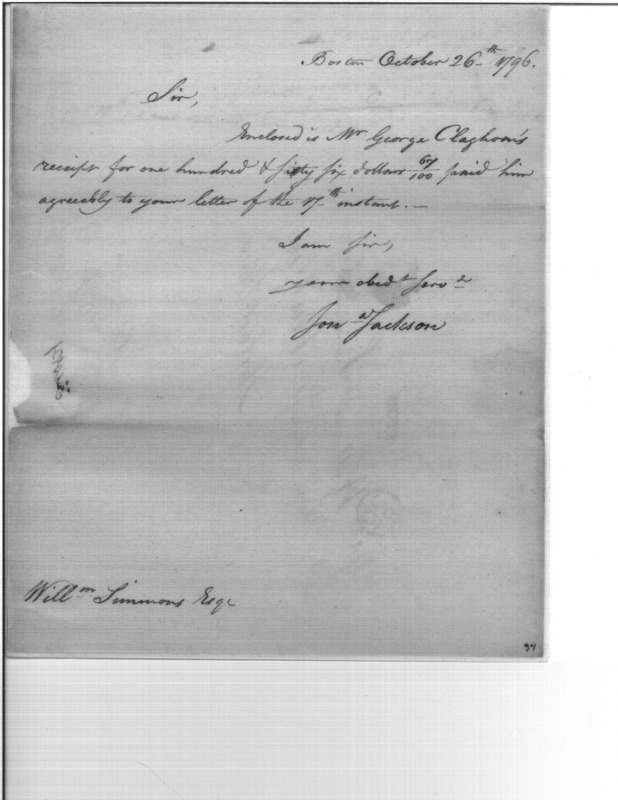 Boston October 26th 1796.
Sir,
Enclosed is Mr George Claghorn's
receipt for one hundred & sixty six dollars 67/100 paid him
agreeably to your letter of the 17th instant. —
I am Sir,
your obedt Servt
Jona Jackson
Willm Simmons Esqr
94